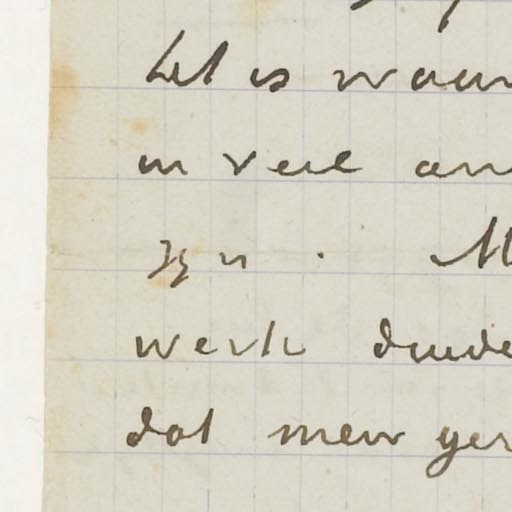 het is waar
in veel an
zyn . M
werk duide
dat men ger